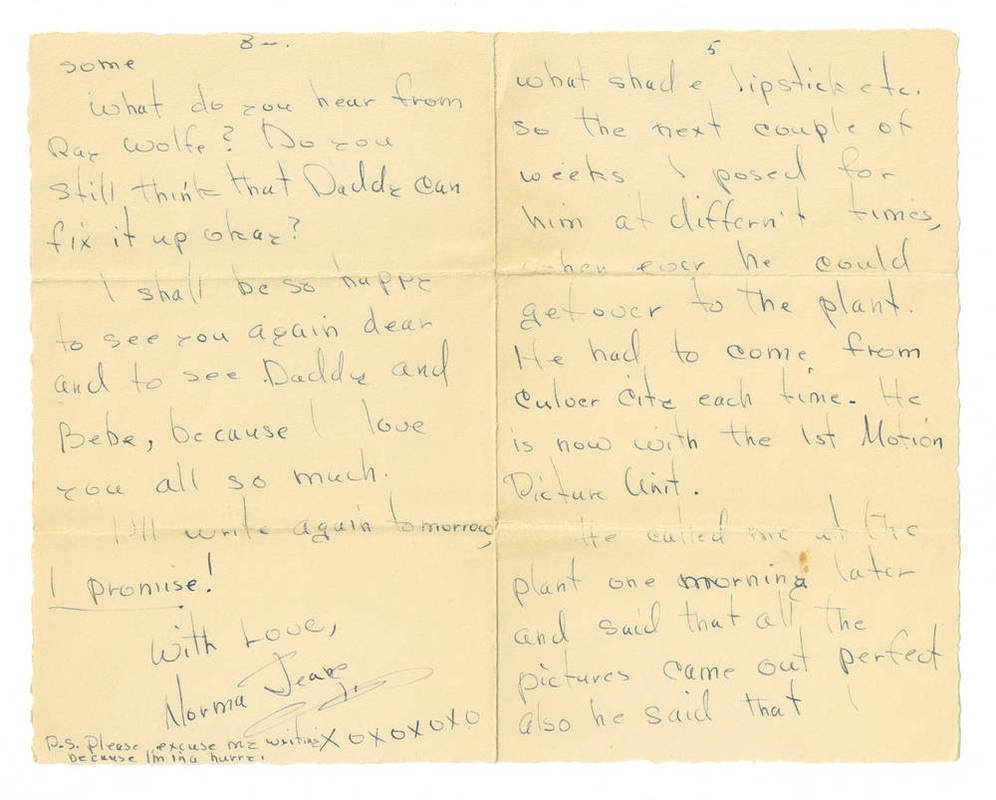 8—.
some
What do you hear from
Ray Wolfe? Do you
still think that Daddy can
fix it up okay?
I shall be so happy
to see you again dear
and to see Daddy and
Bebe, because I love
you all so much.
I'll write again tomorrow,
I promise!
With Love,
Norma Jeane
P.S. Please excuse my writing XOXOXOXO
because I'm in a hurry.
5
what shade lipstick etc.
so the next couple of
weeks I posed for
him at differn't times,
when ever he could
get over to the plant.
He had to come from
Culver City each time. He
is now with the 1st Motion
Picture Unit.
He called me at the
plant one morning later
and said that all the
pictures came out perfect
also he said that I